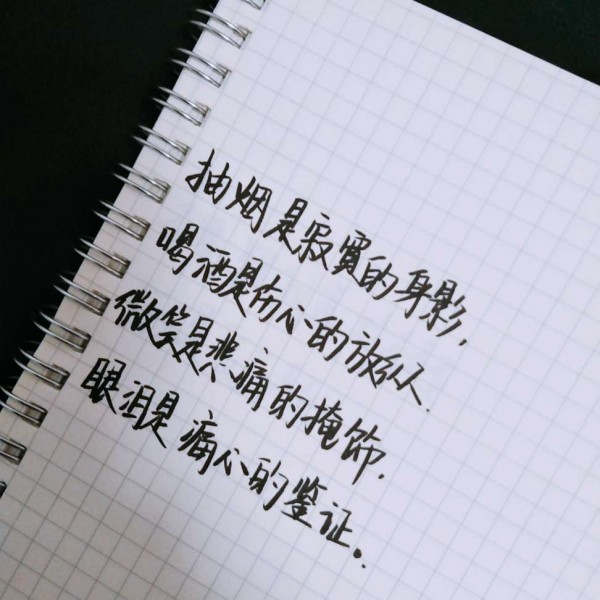 抽烟是寂寞的身影,
喝酒是伤心的放纵.
微笑是悲痛的掩饰.
眼泪是痛心的鉴证..